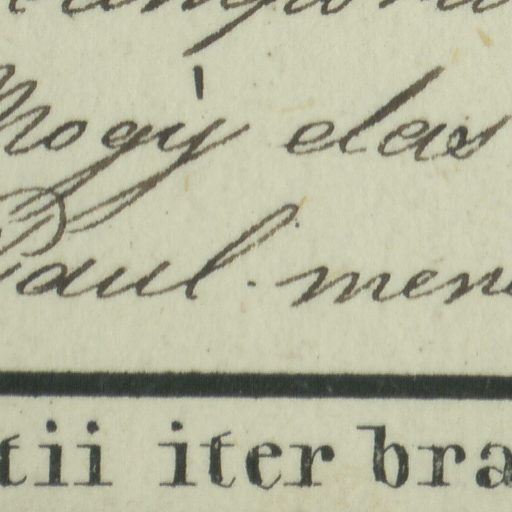 Mogij elas
Paul. men
tii iter bra